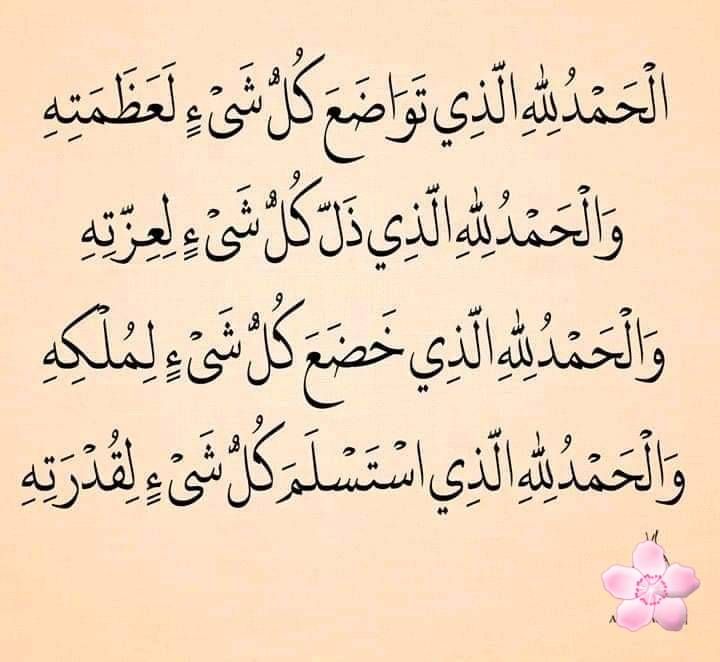 الْحَمْدُ لِلّٰهِ الَّذِي تَوَاضَعَ كُلُّ شَيْءٍ لَعَظَمَتِهِ
وَالْحَمْدُ لِلّٰهِ الَّذِي ذَلَّ كُلُّ شَيْءٍ لِعِزَّتِهِ
وَالْحَمْدُ لِلّٰهِ الَّذِي خَضَعَ كُلُّ شَيْءٍ لِمُلْكِهِ
وَالْحَمْدُ لِلّٰهِ الَّذِي اسْتَسْلَمَ كُلُّ شَيْءٍ لِقُدْرَتِهِ